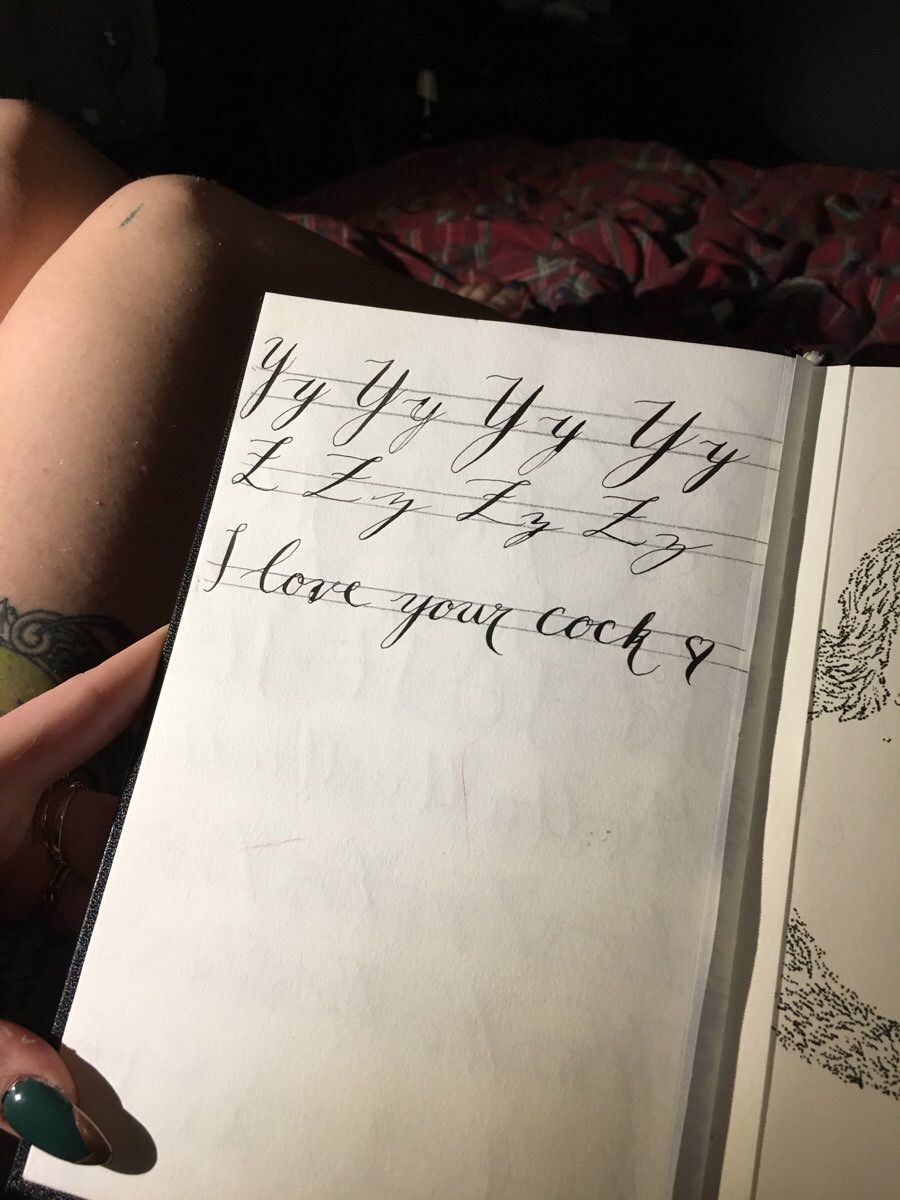 Yy Yy Yy Yy
Z Zz Zz Zz
I love your cock ♡